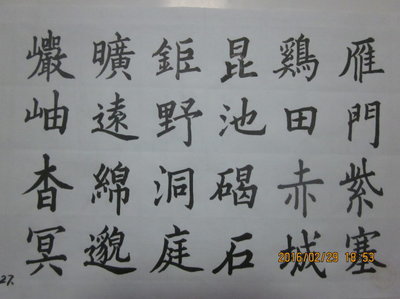 雁門紫塞
鷄田赤城
昆池碣石
鉅野洞庭
曠遠綿邈
巗岫杳冥
27.
2016/02/29 18:53